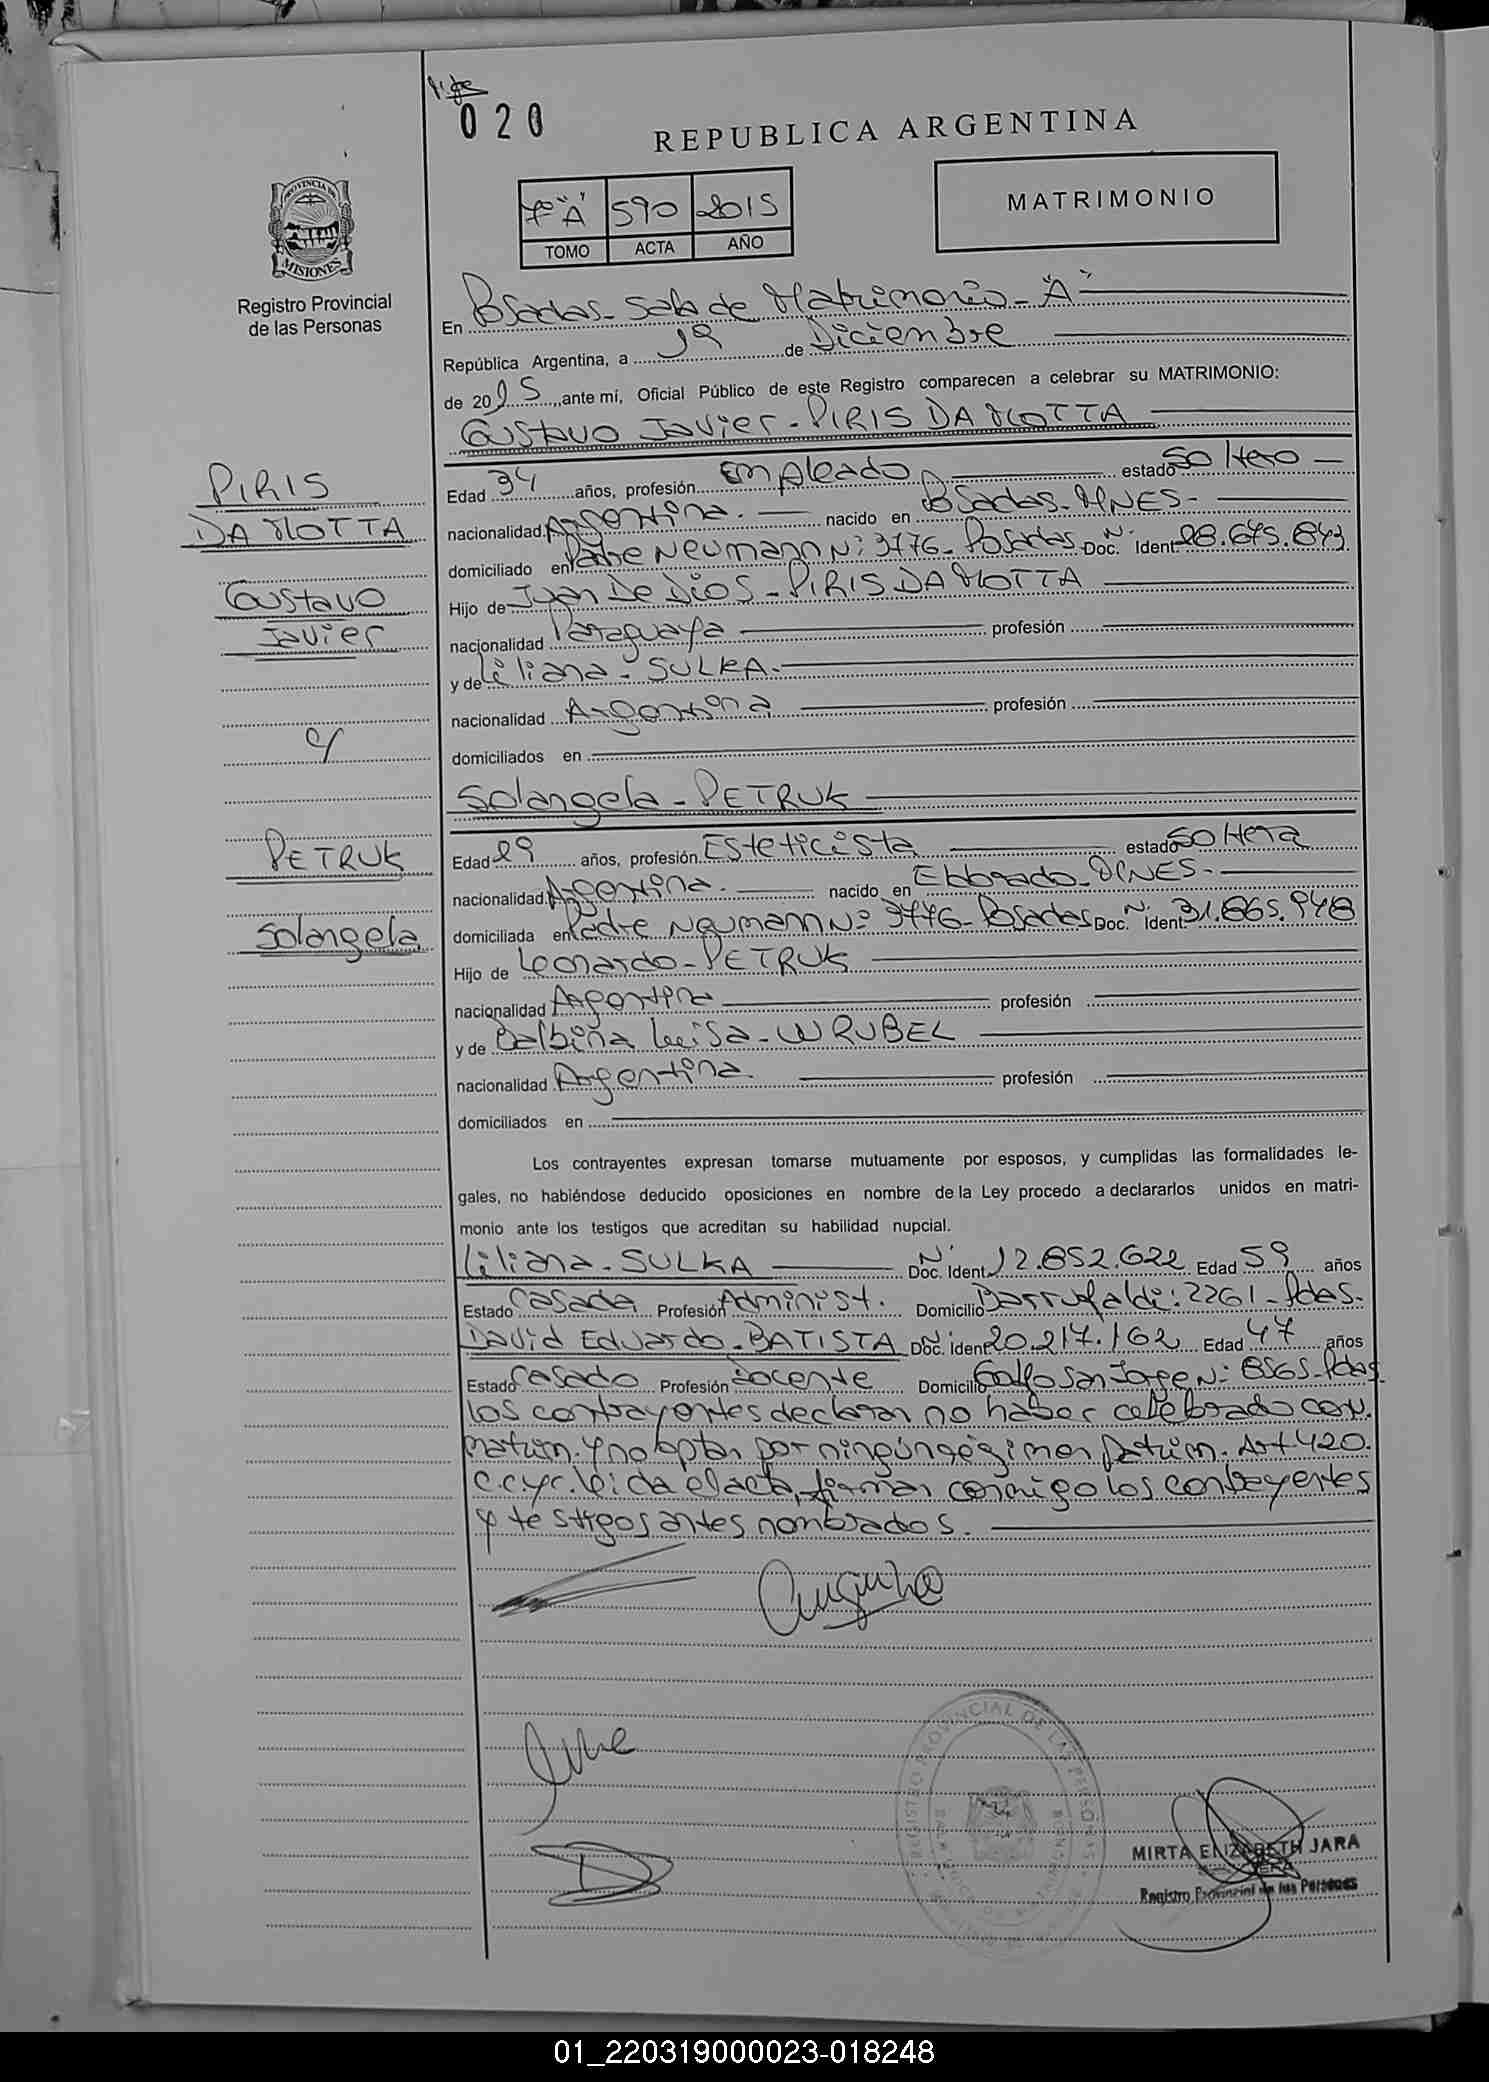 020
REPUBLICA ARGENTINA
PROVINCIA DE
MISIONES
Registro Provincial
de las Personas
7º "A" 590 2015
TOMO ACTA AÑO
MATRIMONIO
En Posadas - Sala de Matrimonio - "A"
República Argentina, a de Diciembre
de 2015, ante mí, Oficial Público de este Registro comparecen a celebrar su MATRIMONIO:
Gustavo Javier - PIRIS DA MOTTA
PIRIS
DA MOTTA
Gustavo
Javier
y
PETRUK
Solangela
Edad 34 años, profesión Empleado estado Soltero
nacionalidad Argentina. nacido en Posadas - MNES -
domiciliado en Padre Neumann Nº 3776 - Posadas Doc. Nº Ident 28.675.843
Hijo de Juan De Dios - PIRIS DA MOTTA
nacionalidad Paraguaya profesión
y de Liliana - SULKA -
nacionalidad Argentina profesión
domiciliados en
Solangela - PETRUK
Edad 29 años, profesión Esteticista estado Soltera
nacionalidad Argentina. nacido en MNES -
domiciliada en Padre Neumann Nº 3776 - Posadas Doc. Nº Ident. 31.865.948
Hijo de Leonardo - PETRUK
nacionalidad Argentina profesión
y de Balbina Luisa - WRUBEL
nacionalidad Argentina. profesión
domiciliados en
Los contrayentes expresan tomarse mutuamente por esposos, y cumplidas las formalidades le-
gales, no habiéndose deducido oposiciones en nombre de la Ley procedo a declararlos unidos en matri-
monio ante los testigos que acreditan su habilidad nupcial.
Liliana - SULKA Doc. Nº Ident. 12.852.622 Edad 59 años
Estado Casada Profesión Administ. Domicilio 2261 - Pdas -
David Eduardo - BATISTA Doc. Nº ident 20.217.162 Edad 47 años
Estado Casado Profesión Docente Domicilio Golfo San Jorge Nº 8565 - Pdas
los contrayentes declaran no haber celebrado conv.
matrim. y no optan por ningún régimen patrim. Art 420.
c.c.y c. leida el acta, firman conmigo los contrayentes
y testigos antes nombrados.
REGISTRO PROVINCIAL DE LAS PERSONAS
MIRTA ELIZABETH JARA
Registro Provincial de las Personas
01_220319000023-018248